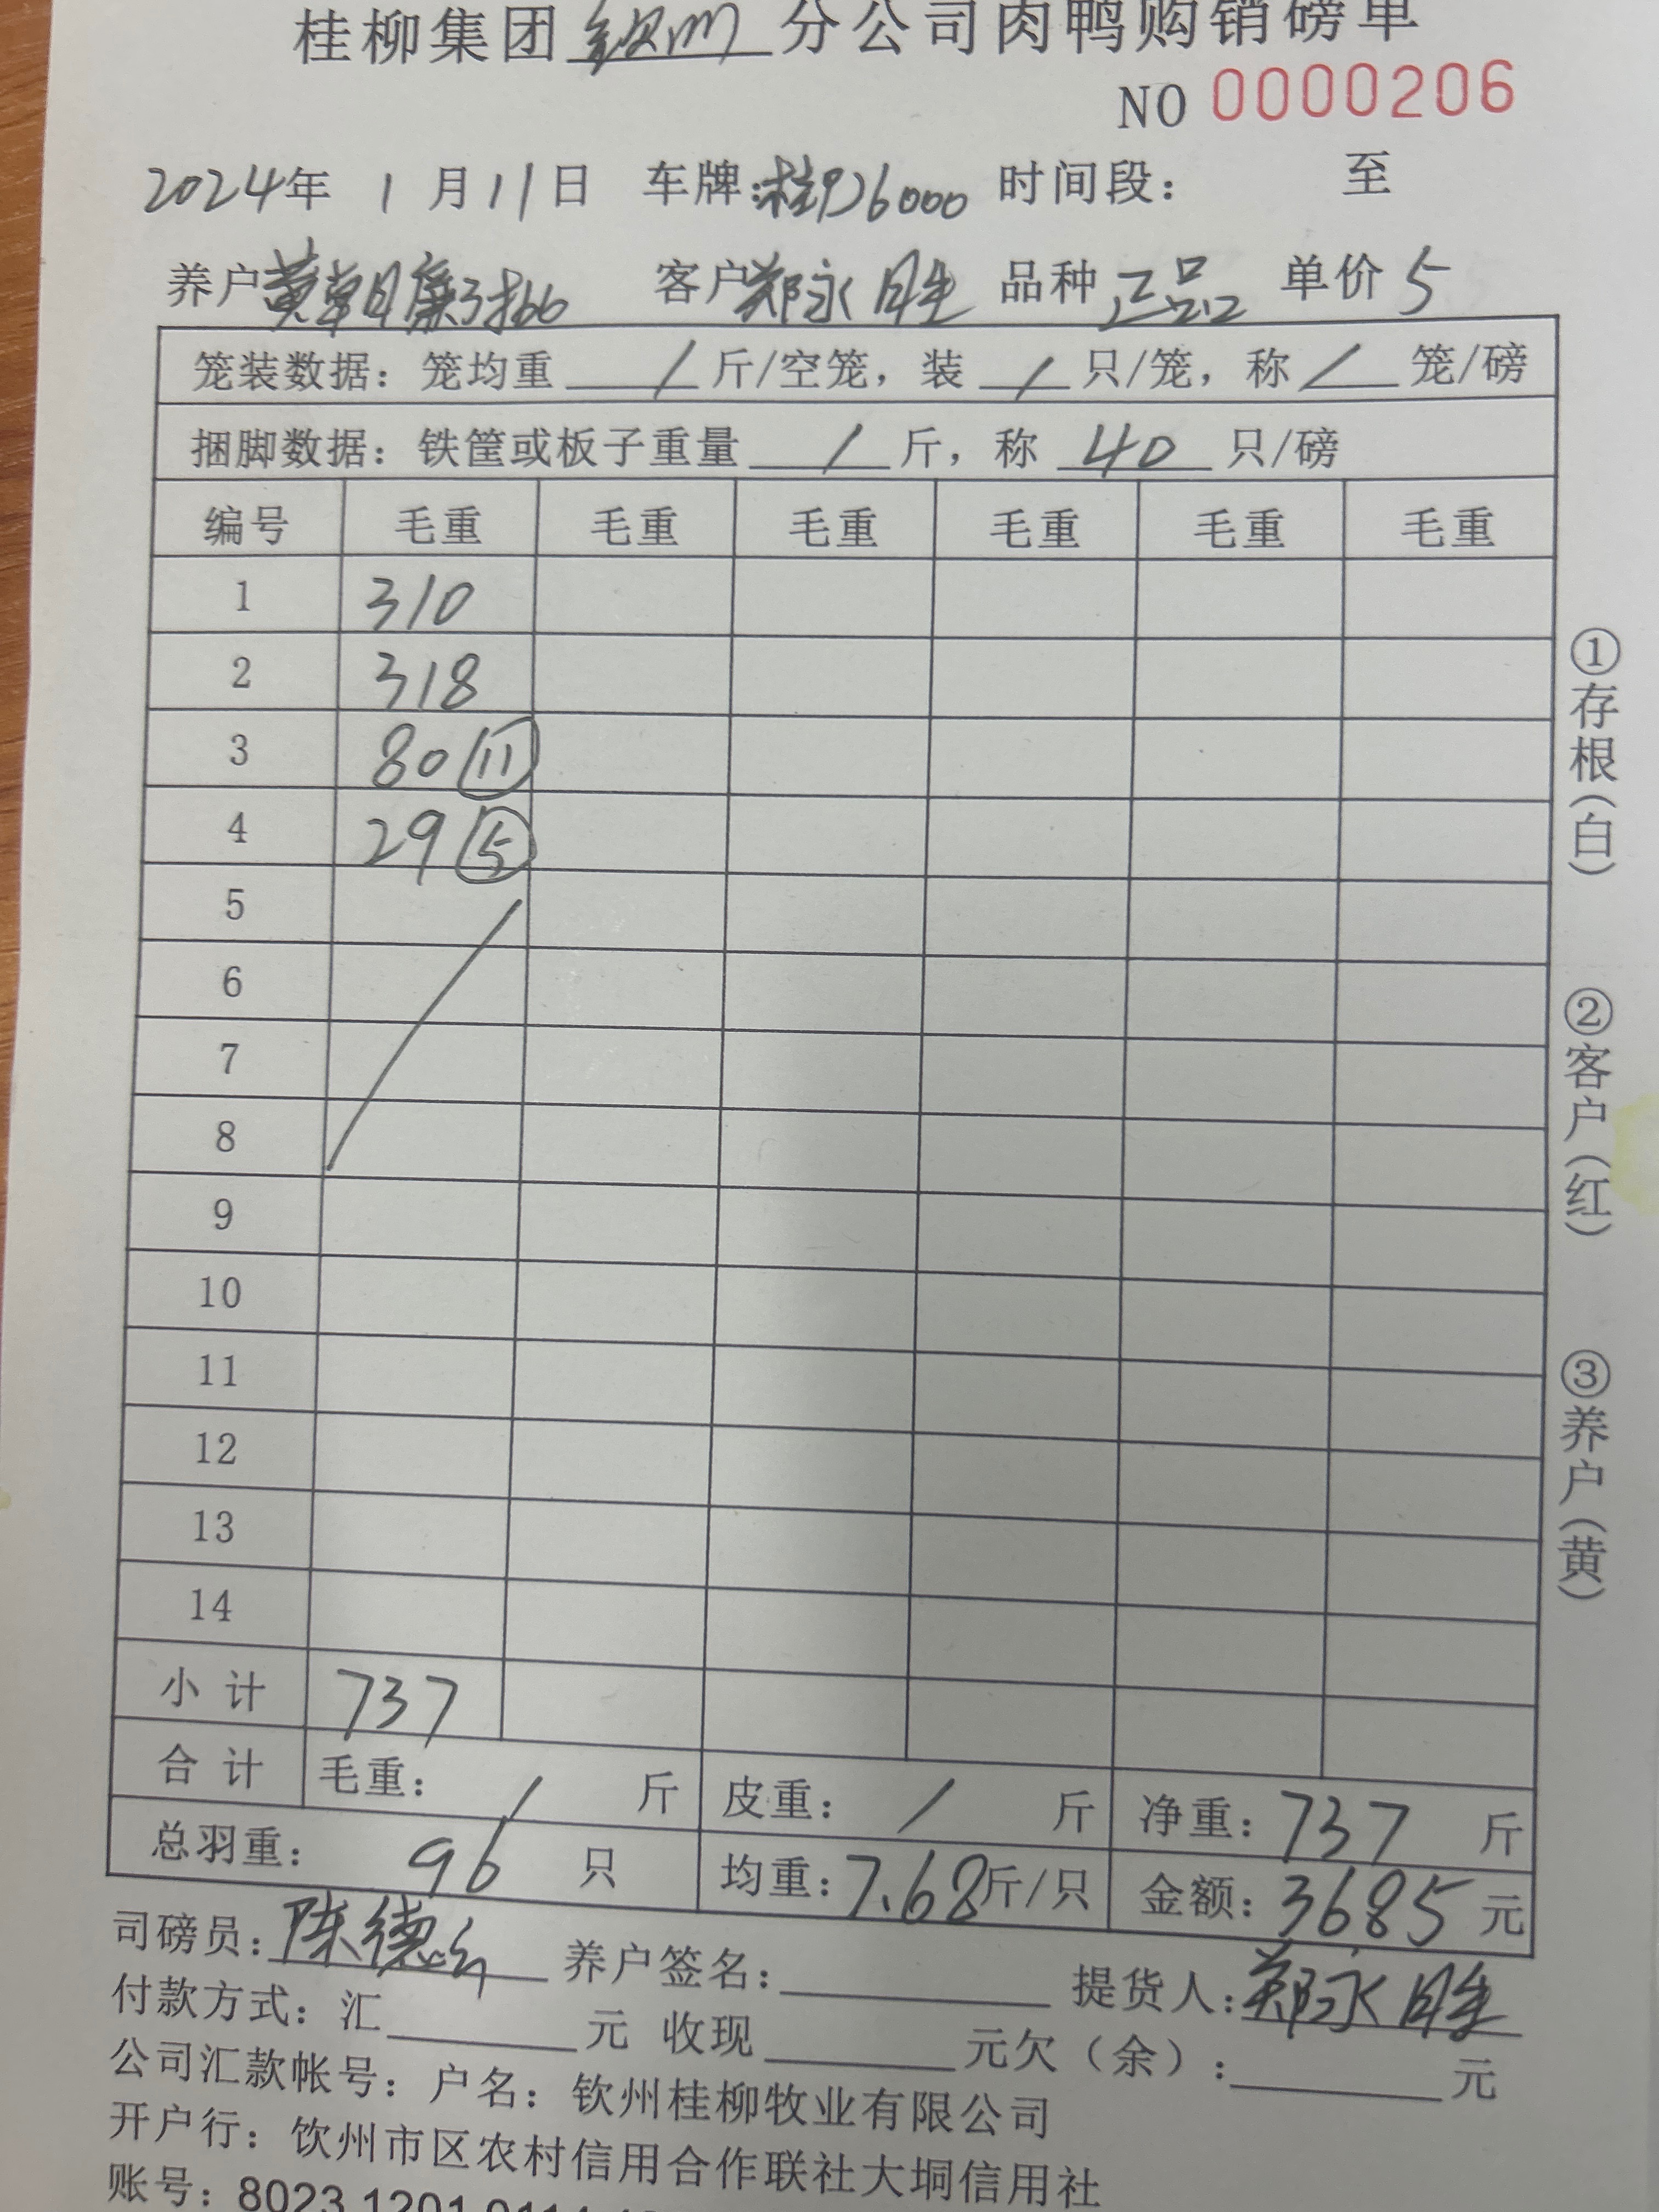 桂柳集团钦州分公司肉鸭购销磅单
NO 0000206
2024年 1 月 11 日 车牌: 桂 26000 时间段: 至
养户 黄朝廉 客户 郑永胜 品种 正品 单价 5
笼装数据: 笼均重 / 斤/空笼, 装 / 只/笼, 称 / 笼/磅
捆脚数据: 铁筐或板子重量 / 斤, 称 40 只/磅
编号 毛重 毛重 毛重 毛重 毛重 毛重
1 310
2 318
3 80 ⑪
4 29 ⑤
5
6
7
8
9
10
11
12
13
14
小计 737
合计 毛重: / 斤 皮重: / 斤 净重: 737 斤
总羽重: 96 只 均重: 7.68 斤/只 金额: 3685 元
司磅员: 陈德 养户签名: 提货人: 郑永胜
付款方式: 汇 元 收现 元欠(余): 元
公司汇款帐号: 户名: 钦州桂柳牧业有限公司
开户行: 饮州市区农村信用合作联社大垌信用社
账号: 8023 1201 0114
①存根(白)
②客户(红)
③养户(黄)